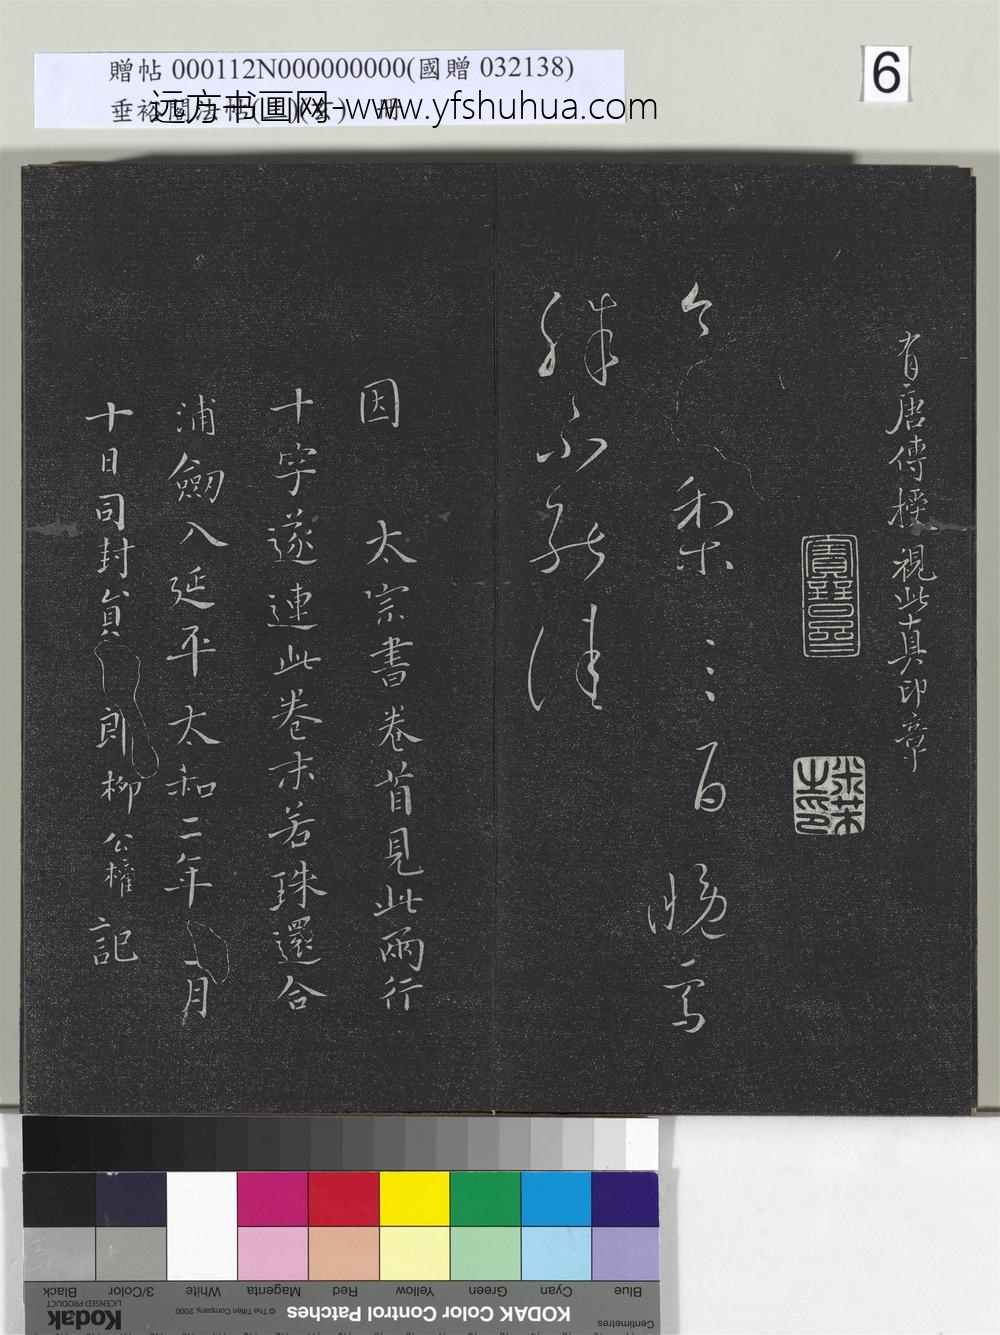 贈帖 000112N000000000(國贈 032138)
远方书画网-www.yfshuhua.com
6
有唐傳授視此真印章
今梨三百晚雪
殊不能佳
因太宗書卷首見此兩行
十字遂連此卷末若珠還合
浦劒入延平太和二年二月
十日司封員郎柳公權記
Blue Cyan Green Yellow Red Magenta White 3/Color Black
KODAK Color Control Patches
© The Tiffen Company, 2000
Kodak
LICENSED PRODUCT
Centimetres